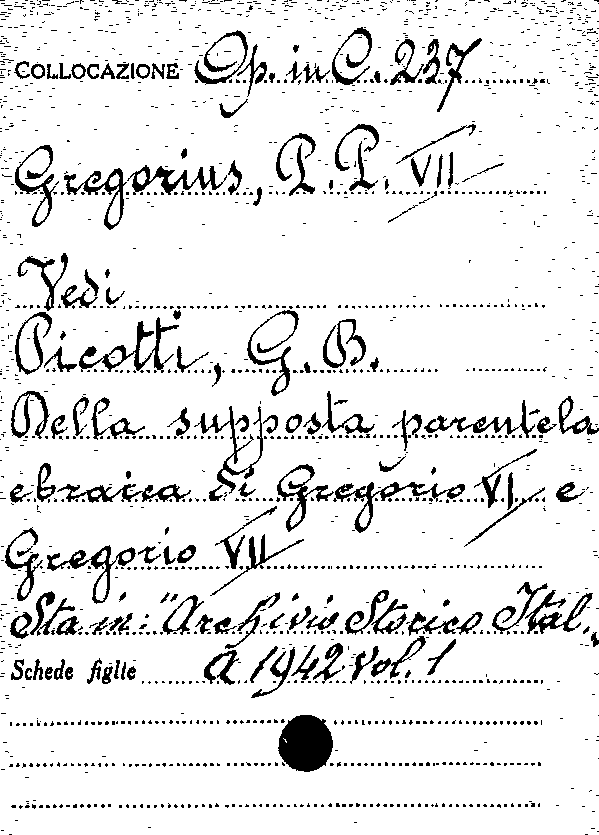 COLLOCAZIONE Op. in C. 237
Gregorius, P.P. VII
Vedi
Picotti, G.B.
Della supposta parentela
ebraica di Gregorio VI e
Gregorio VII
Sta in: "Archivio Storico Ital.„
Schede figlie A 1942 Vol. 1